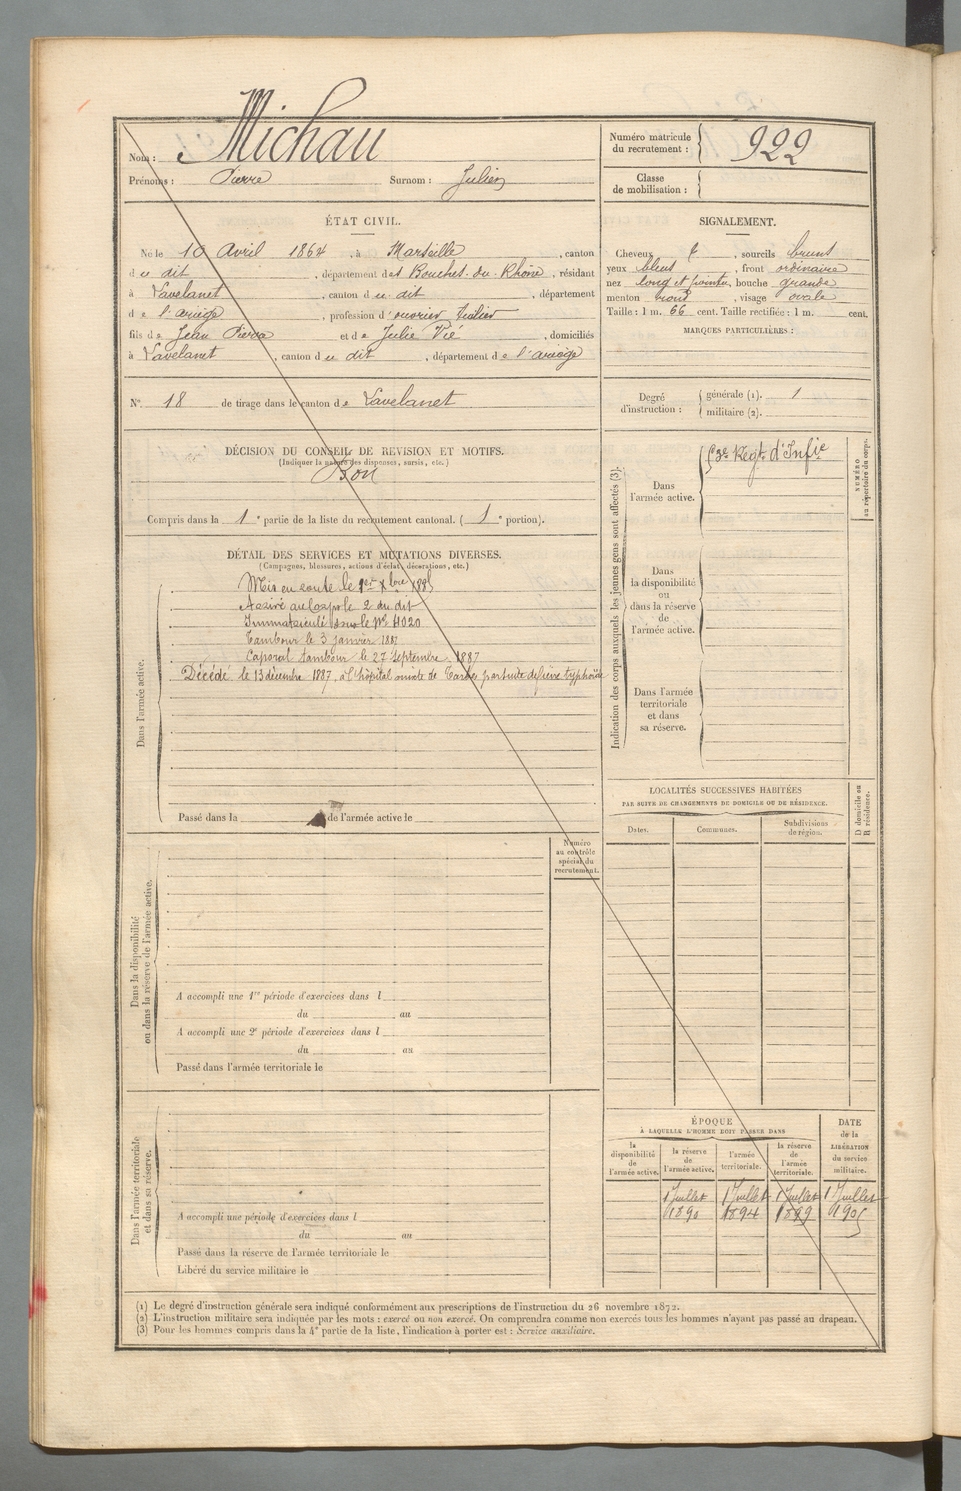 Nom : Michau
Prénoms : Pierre Surnom : Julien
Numéro matricule du recrutement : 922
Classe de mobilisation :
ÉTAT CIVIL.
Né le 10 Avril 1864, à Marseille, canton
du dit, département des Bouches-du-Rhône, résidant
à Lavelanet, canton du dit, département
de l'ariège, profession d'ouvrier
fils de Jean Pierre et de Julie Vié, domiciliés
à Lavelanet, canton du dit, département de l'ariège
SIGNALEMENT.
Cheveux et, sourcils bruns
yeux bleus, front ordinaire
nez long et pointu, bouche grande
menton rond, visage ovale
Taille : 1 m. 66 cent. Taille rectifiée : 1 m. cent.
MARQUES PARTICULIÈRES :
N° 18 de tirage dans le canton de Lavelanet
Degré d'instruction : générale (1). 1
militaire (2).
DÉCISION DU CONSEIL DE REVISION ET MOTIFS.
(Indiquer la nature des dispenses, sursis, etc.)
Bon
Compris dans la 1e partie de la liste du recrutement cantonal. ( 1e portion).
DÉTAIL DES SERVICES ET MUTATIONS DIVERSES.
(Campagnes, blessures, actions d'éclat, décorations, etc.)
Dans l'armée active.
Mis en route le 1er Xbre 1885
Arrivé au Corps le 2 du dit
Immatriculé sous le No 4020
Tambour le 3 janvier 1887
Caporal tambour le 27 Septembre 1887
Décédé le 13 décembre 1887, à l'hôpital mixte de Tarbes par suite de fièvre typhoïde
Passé dans la de l'armée active le
Indication des corps auxquels les jeunes gens sont affectés (3).
NUMÉRO au répertoire du corps.
Dans l'armée active.
Regt. d'Infie
Dans la disponibilité ou dans la réserve de l'armée active.
Dans l'armée territoriale et dans sa réserve.
LOCALITÉS SUCCESSIVES HABITÉES
PAR SUITE DE CHANGEMENTS DE DOMICILE OU DE RÉSIDENCE.
Dates. Communes. Subdivisions de région.
D domicile ou R résidence.
Numéro au contrôle spécial du recrutement.
Dans la disponibilité ou dans la réserve de l'armée active.
A accompli une 1re période d'exercices dans l
du au
A accompli une 2e période d'exercices dans l
du au
Passé dans l'armée territoriale le
Dans l'armée territoriale et dans sa réserve.
A accompli une période d'exercices dans l
du au
Passé dans la réserve de l'armée territoriale le
Libéré du service militaire le
ÉPOQUE
À LAQUELLE L'HOMME DOIT PASSER DANS
la disponibilité de l'armée active.
la réserve de l'armée active.
l'armée territoriale.
la réserve de l'armée territoriale.
DATE de la LIBÉRATION du service militaire.
1 Juillet 1 Juillet 1 Juillet 1 Juillet
1890 1894 1899 1905
(1) Le degré d'instruction générale sera indiqué conformément aux prescriptions de l'instruction du 26 novembre 1872.
(2) L'instruction militaire sera indiquée par les mots : exercé ou non exercé. On comprendra comme non exercés tous les hommes n'ayant pas passé au drapeau.
(3) Pour les hommes compris dans la 4e partie de la liste, l'indication à porter est : Service auxiliaire.